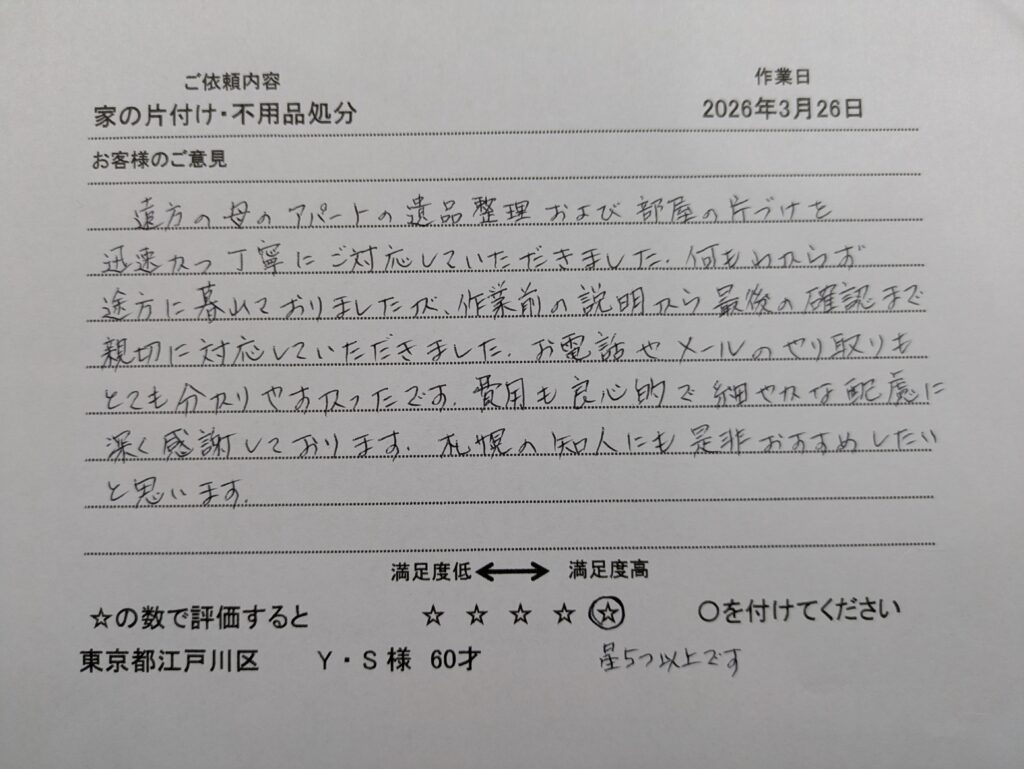 ご依頼内容
作業日
家の片付け・不用品処分
2026年3月26日
お客様のご意見
遠方の母のアパートの遺品整理および部屋の片づけを
迅速かつ丁寧にご対応していただきました。何もわからず
途方に暮れておりましたが、作業前の説明から最後の確認まで
親切に対応していただきました。お電話やメールのやり取りも
とても分かりやすかったです。費用も良心的で細やかな配慮に
深く感謝しております。札幌の知人にも是非おすすめしたい
と思います。
満足度低 ⟷ 満足度高
☆の数で評価すると ☆ ☆ ☆ ☆ ☆ 〇を付けてください
東京都江戸川区 Y・S 様 60才
星5つ以上です